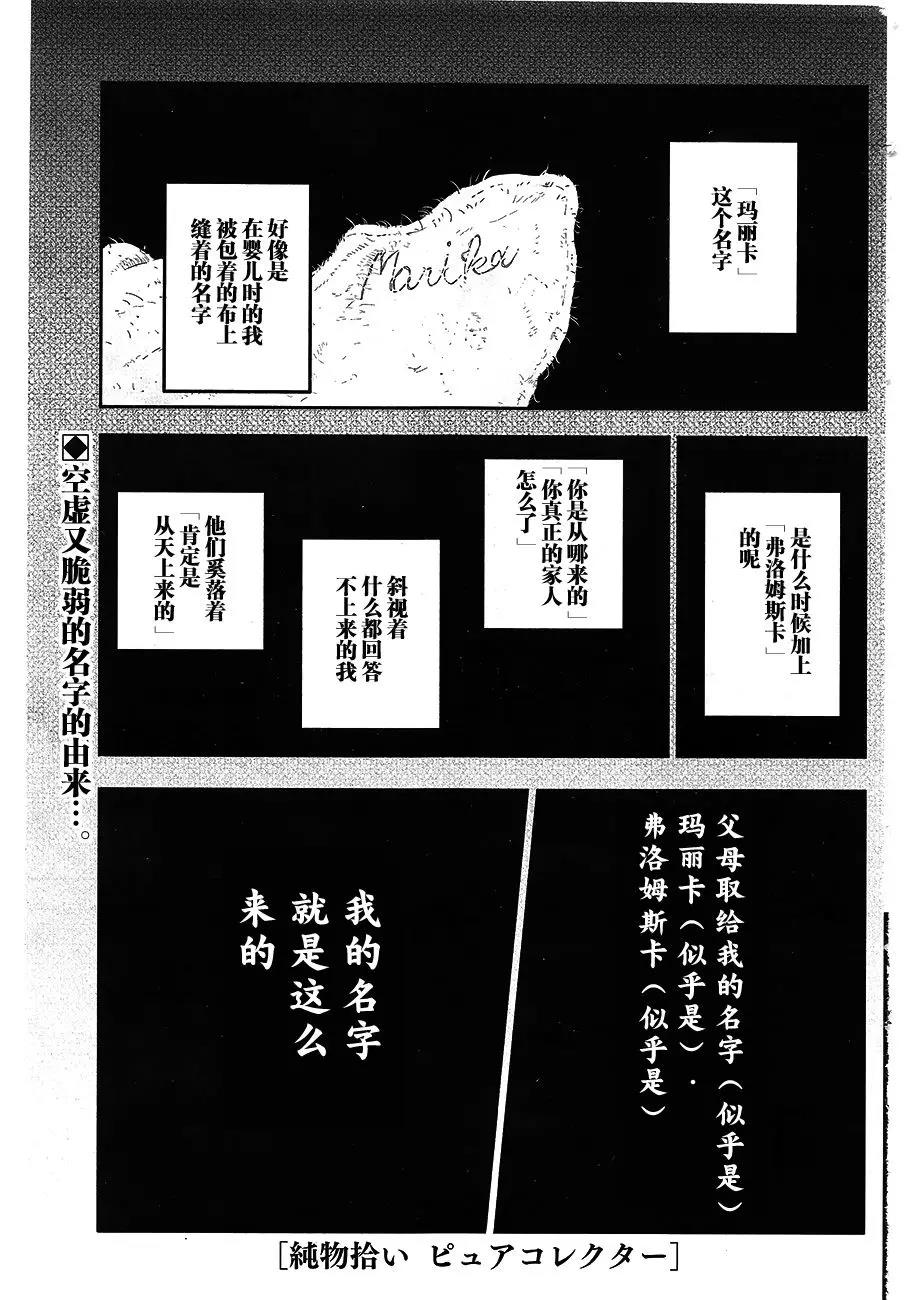 「玛丽卡」
这个名字
好像是
在婴儿时的我
被包着的布上
缝着的名字
Marika
是什么时候加上
「弗洛姆斯卡」
的呢
「你是从哪来的」
「你真正的家人
怎么了」
斜视着
什么都回答
不上来的我
他们奚落着
「肯定是
从天上来的」
父母取给我的名字(似乎是)
玛丽卡(似乎是)·
弗洛姆斯卡(似乎是)
我的名字
就是这么
来的
◆空虚又脆弱的名字的由来…。
[純物拾い ピュアコレクター]